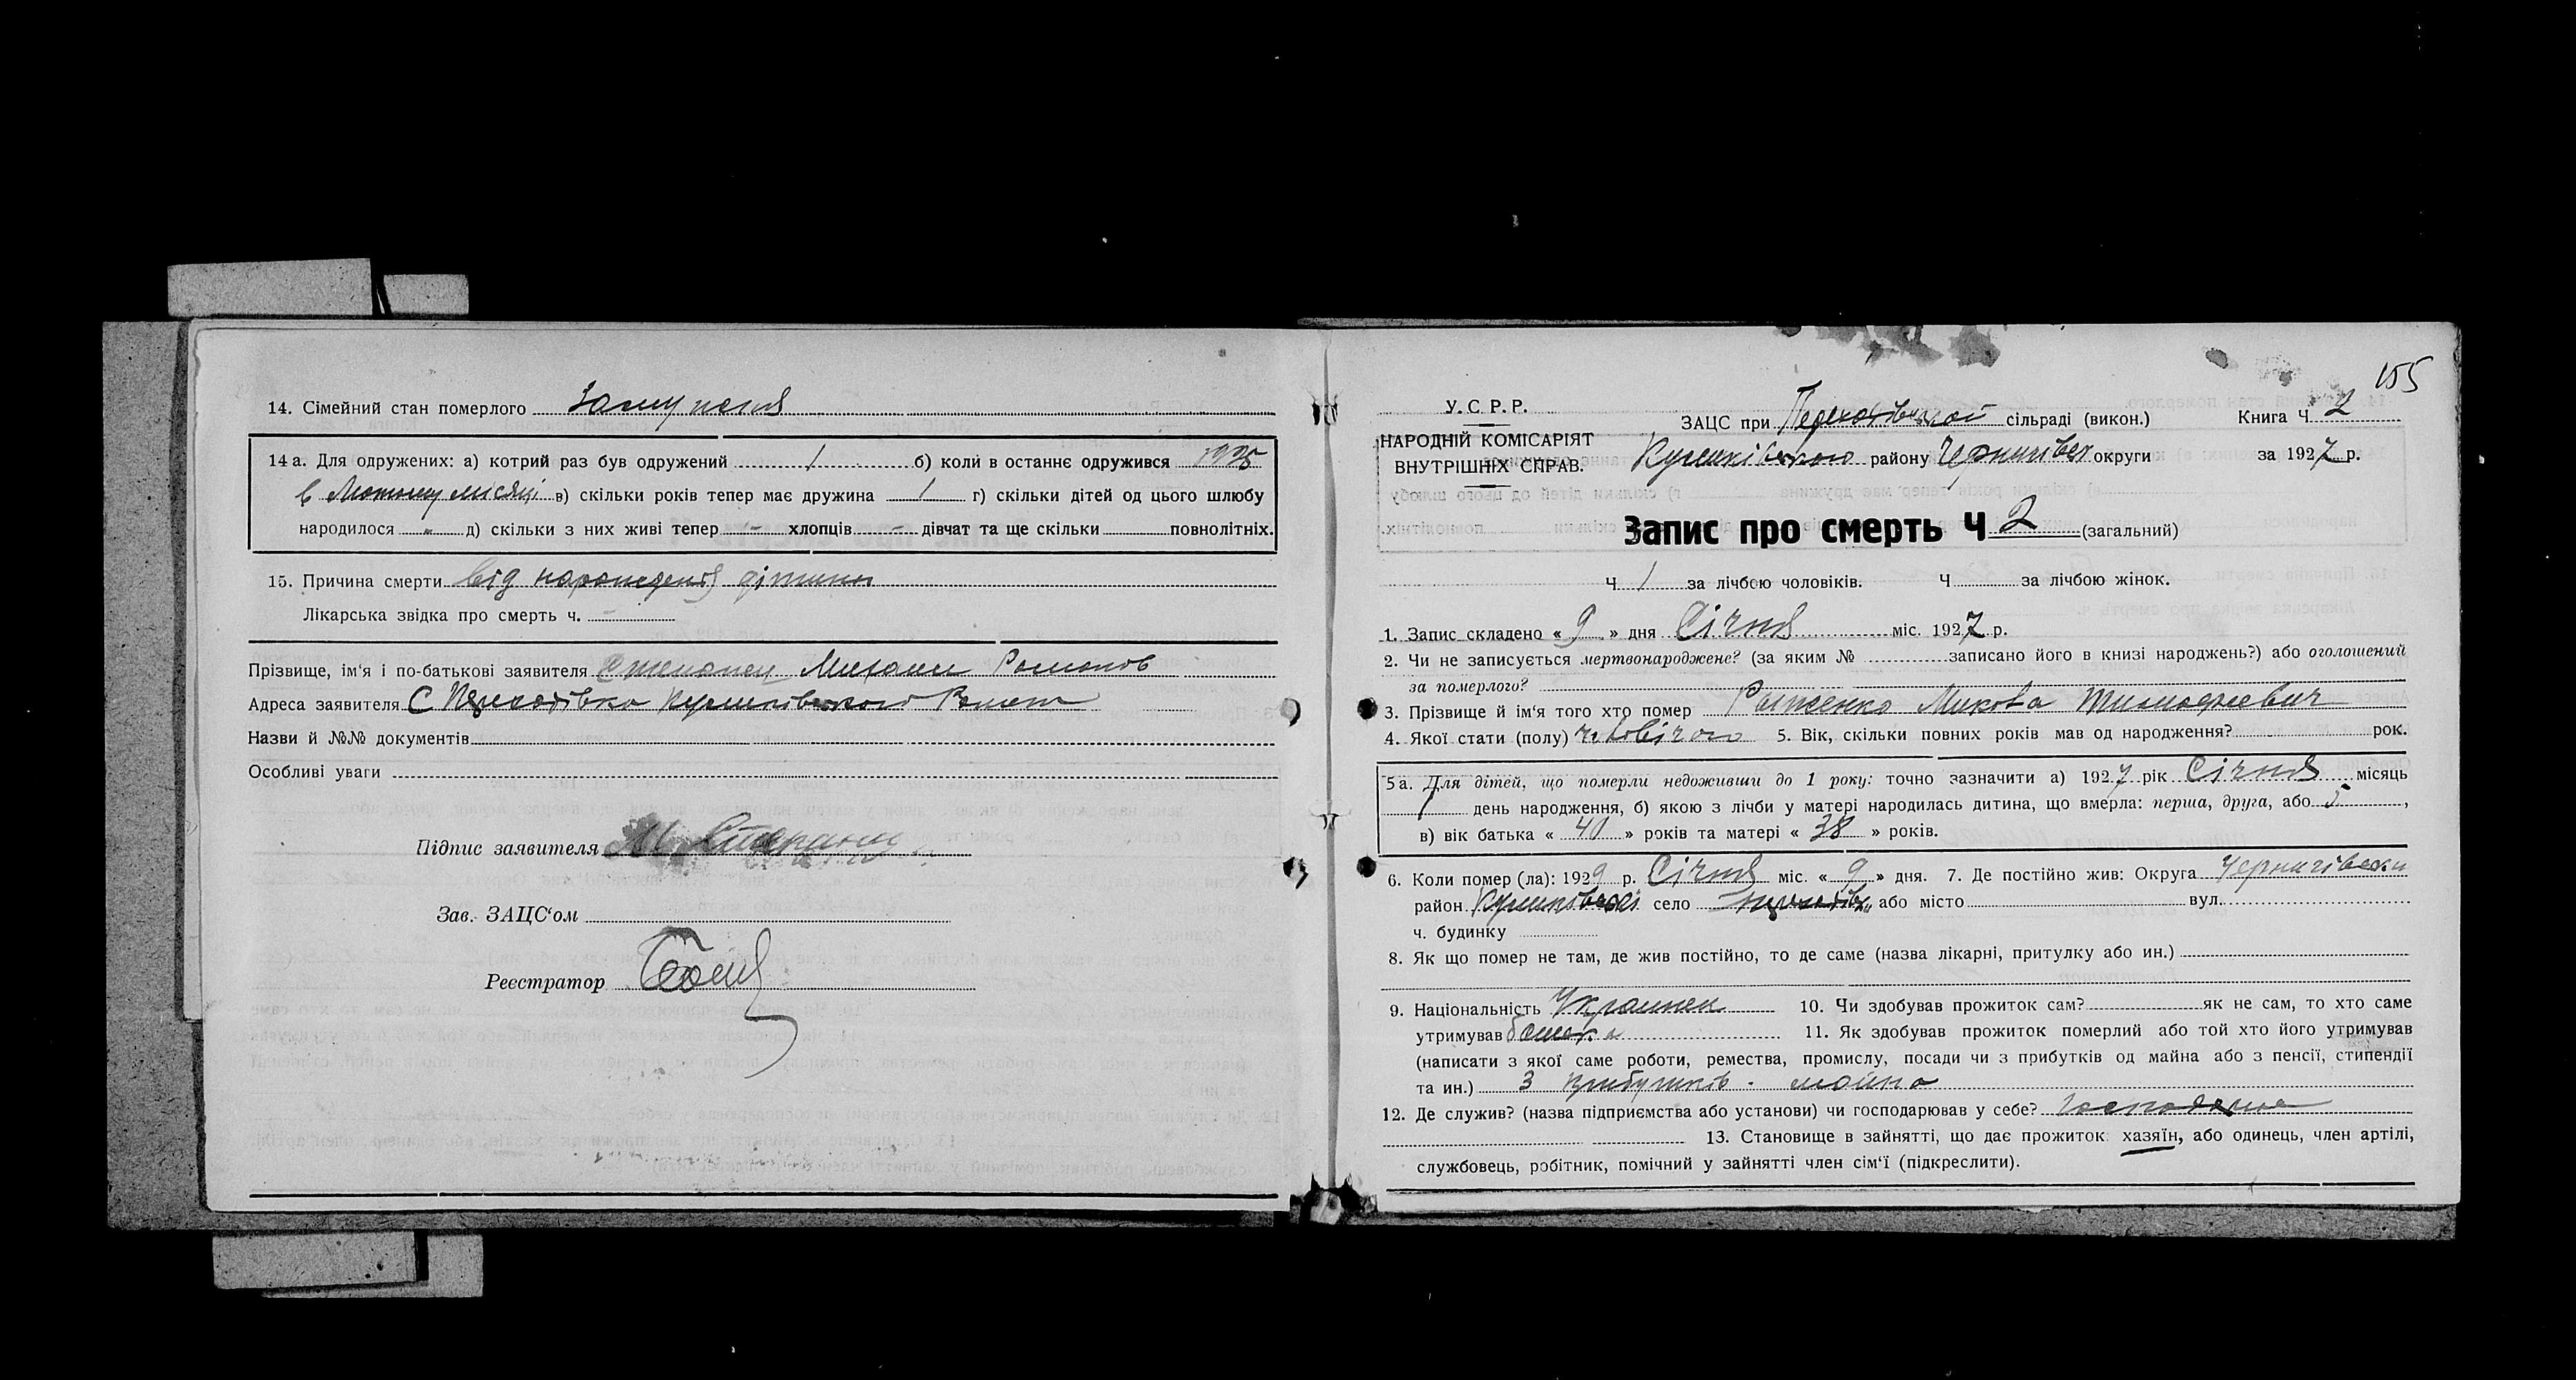 14. Сімейний стан померлого Замужня
14 а. Для одружених: а) котрий раз був одружений 1 б) коли в останнє одружився 1925
в Лютому місяці в) скільки років тепер має дружина 1 г) скільки дітей од цього шлюбу
народилося " д) скільки з них живі тепер - хлопців - дівчат та ще скільки повнолітніх.
15. Причина смерти від народження дитини
Лікарська звідка про смерть ч. -
Прізвище, ім'я і по-батькові заявителя Михаил Романов
Адреса заявителя С
Назви й №№ документів
Особливі уваги
Підпис заявителя М
Зав. ЗАЦС'ом
Реєстратор
155
У. С. Р. Р.
НАРОДНІЙ КОМІСАРІЯТ
ВНУТРІШНІХ СПРАВ.
ЗАЦС при сільраді (викон.) Книга Ч 2
Куликівського району Чернигівск округи за 1927 р.
Запис про смерть Ч 2 (загальний)
Ч 1 за лічбою чоловіків. Ч за лічбою жінок.
1. Запис складено « 9 » дня Січня міс. 1927 р.
2. Чи не записується мертвонароджене? (за яким № записано його в книзі народжень?) або оголошений
за померлого?
3. Прізвище й ім'я того хто помер Микола Тимофеевич
4. Якої стати (полу) 5. Вік, скільки повних років мав од народження? рок.
5 а. Для дітей, що померли недоживши до 1 року: точно зазначити а) 1927 рік Січня місяць
1 день народження, б) якою з лічби у матері народилась дитина, що вмерла: перша, друга, або 5,
в) вік батька « 40 » років та матері « 38 » років.
6. Коли помер (ла): 1929 р. Січня міс. « 9 » дня. 7. Де постійно жив: Округа Чернигівски
район село або місто вул.
ч. будинку
8. Як що помер не там, де жив постійно, то де саме (назва лікарні, притулку або ин.)
9. Національність Украинец 10. Чи здобував прожиток сам? як не сам, то хто саме
утримував батька 11. Як здобував прожиток померлий або той хто його утримував
(написати з якої саме роботи, ремества, промислу, посади чи з прибутків од майна або з пенсії, стипендії
та ин.) З прибутків майна
12. Де служив? (назва підприємства або установи) чи господарював у себе?
13. Становище в зайнятті, що дає прожиток: хазяїн, або одинець, член артілі,
службовець, робітник, помічний у зайнятті член сім'ї (підкреслити).